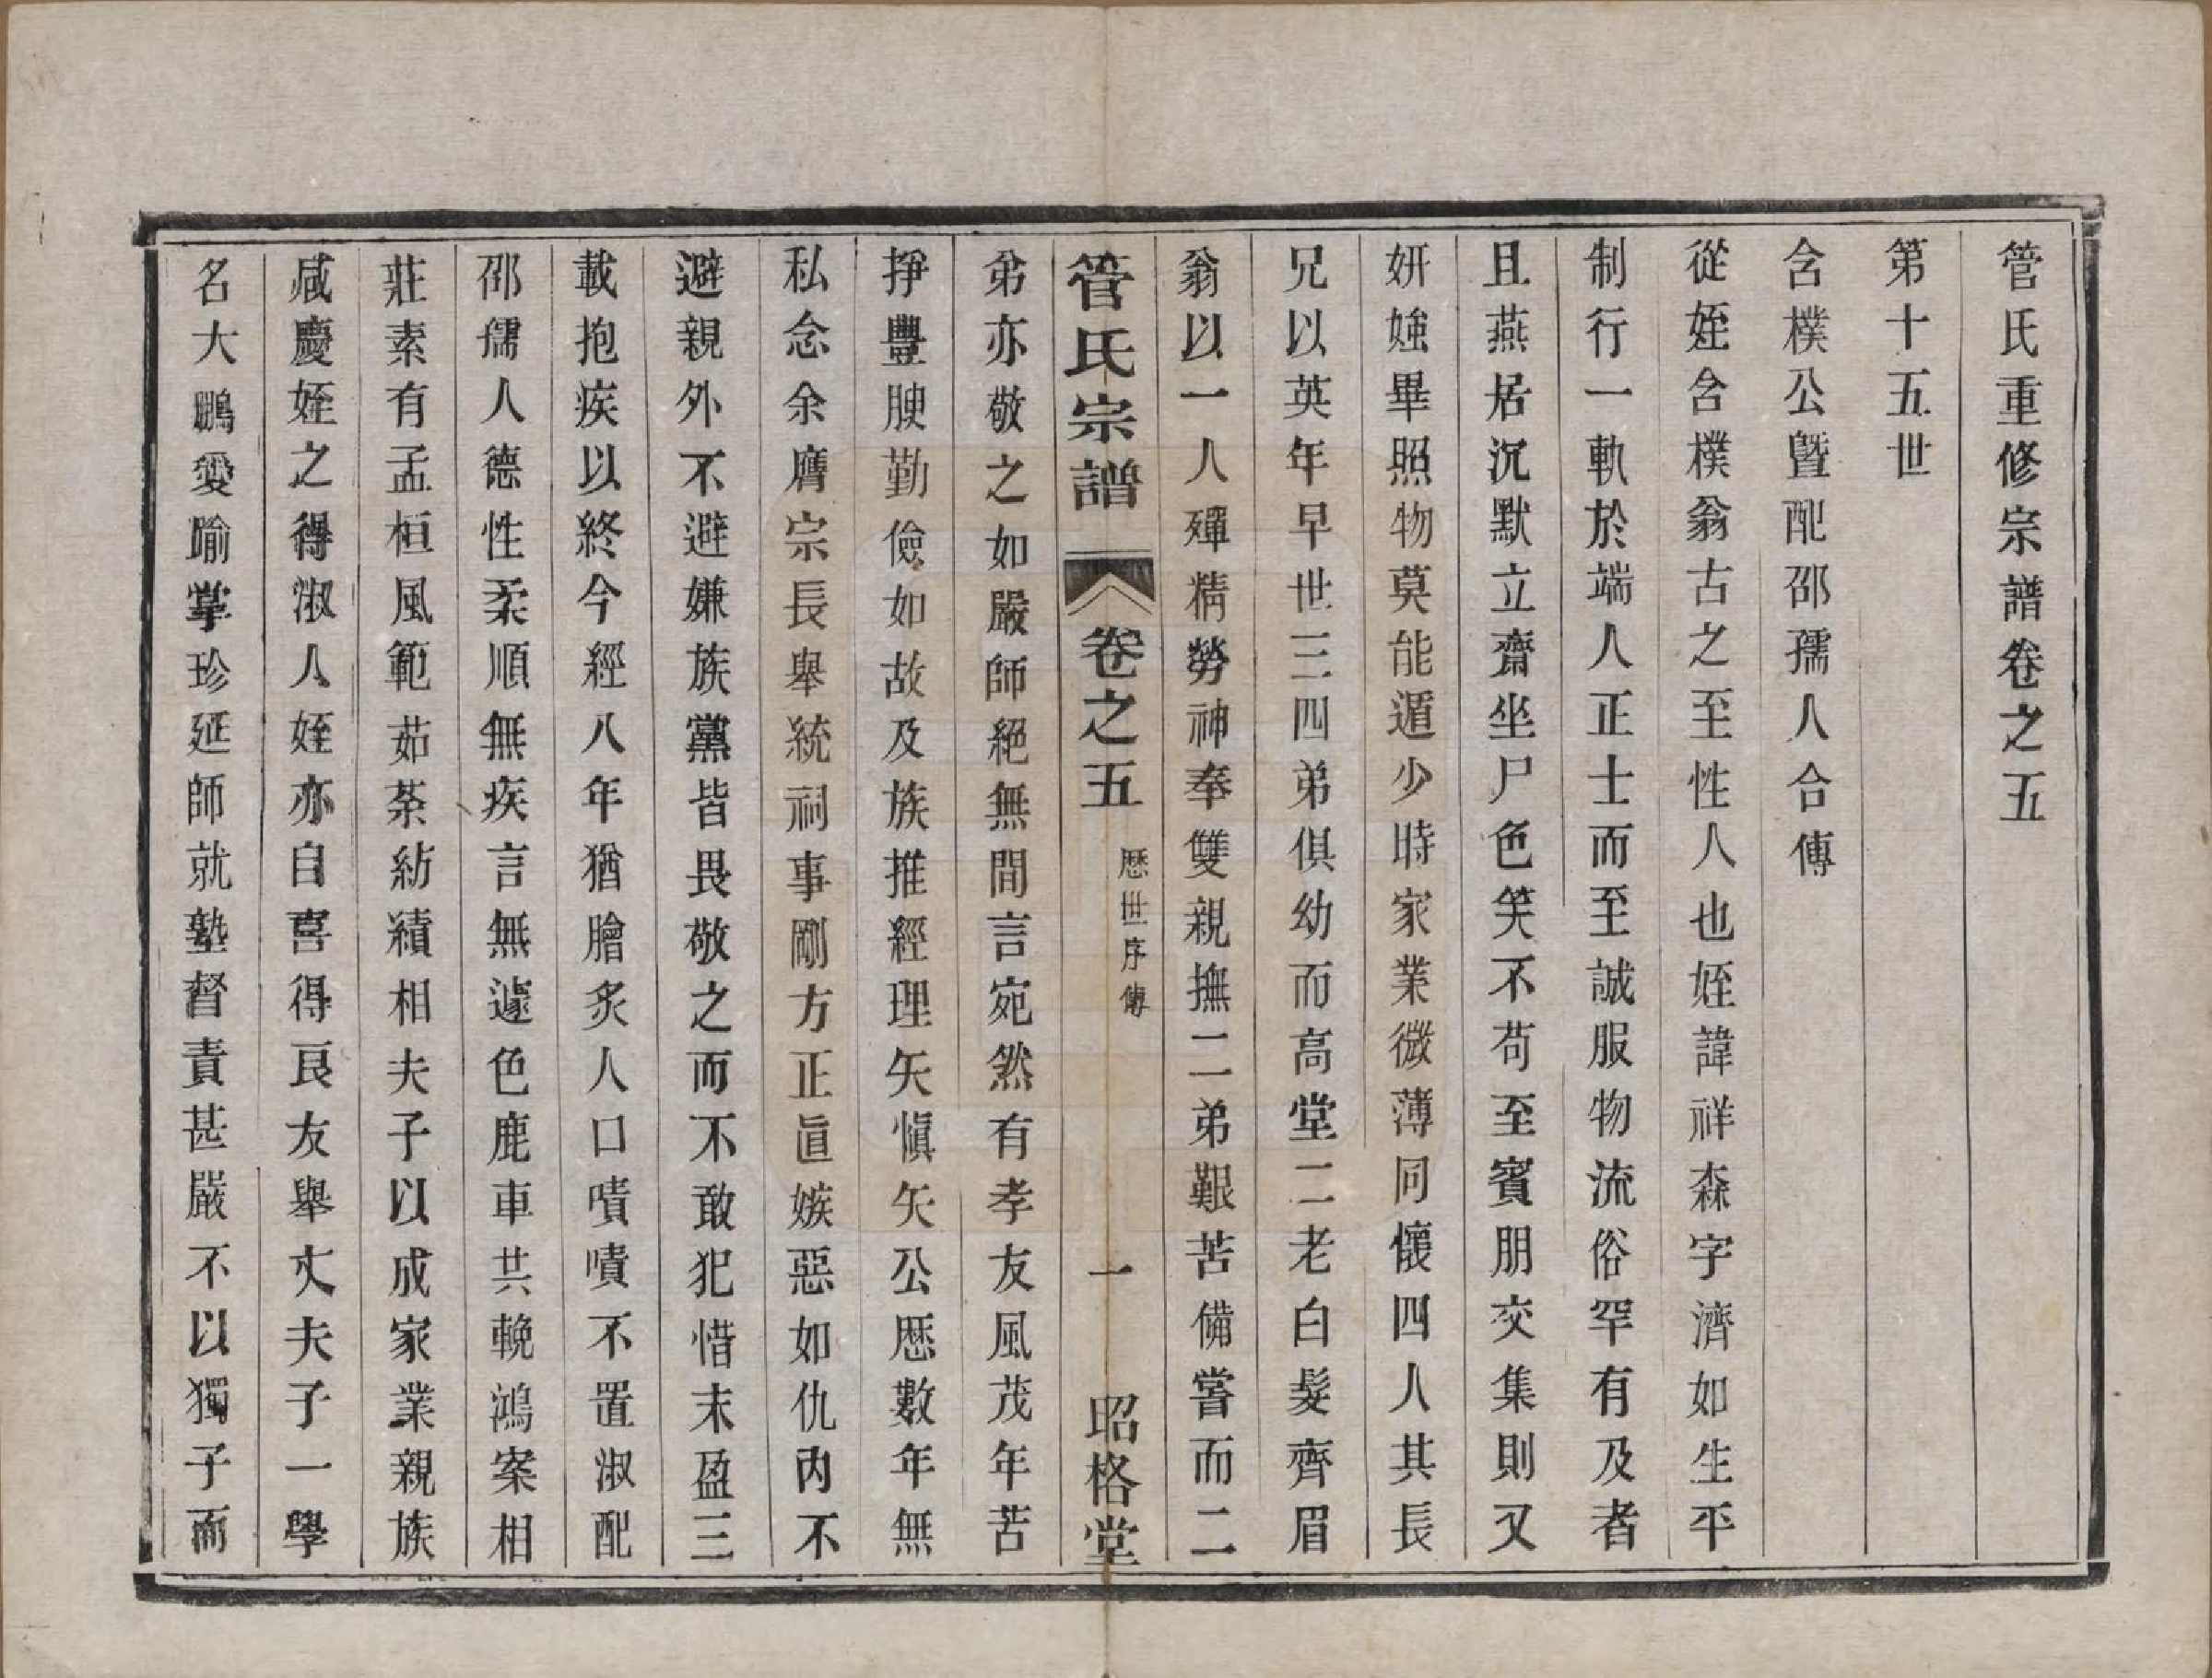 管氏重修宗譜卷之五
第十五世
含樸公曁配邵孺人合傳
從姪含樸翁古之至性人也姪諱祥森字濟如生平
制行一軌於端人正士而至誠服物流俗罕有及者
且燕居沉默立齋坐尸色笑不苟至賓朋交集則又
妍媸畢照物莫能遁少時家業微薄同懷四人其長
兄以英年早世三四弟俱幼而高堂二老白髮齊眉
翁以一人殫精勞神奉雙親撫二弟艱苦備嘗而二
管氏宗譜
卷之五
歷世序傳
一
昭格堂
弟亦敬之如嚴師絕無間言宛然有孝友風茂年苦
掙豐腴勤儉如故及族推經理矢愼矢公歷數年無
私念余膺宗長舉統祠事剛方正眞嫉惡如仇內不
避親外不避嫌族黨皆畏敬之而不敢犯惜未盈三
載抱疾以終今經八年猶膾炙人口嘖嘖不置淑配
邵孺人德性柔順無疾言無遽色鹿車共輓鴻案相
莊素有孟桓風範茹荼紡績相夫子以成家業親族
咸慶姪之得淑人姪亦自喜得良友舉丈夫子一學
名大鵬愛踰掌珍延師就塾督責甚嚴不以獨子而